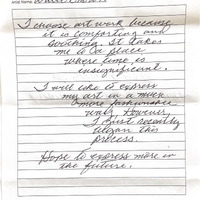 Artist Name:
I choose art work because
it is comforting and
soothing. It takes
me to a place
where time is
insignificant.
I would like to express
my art in a much
more fashionable
way. However,
I just recently
began this
process.
Hope to express more in
the future.